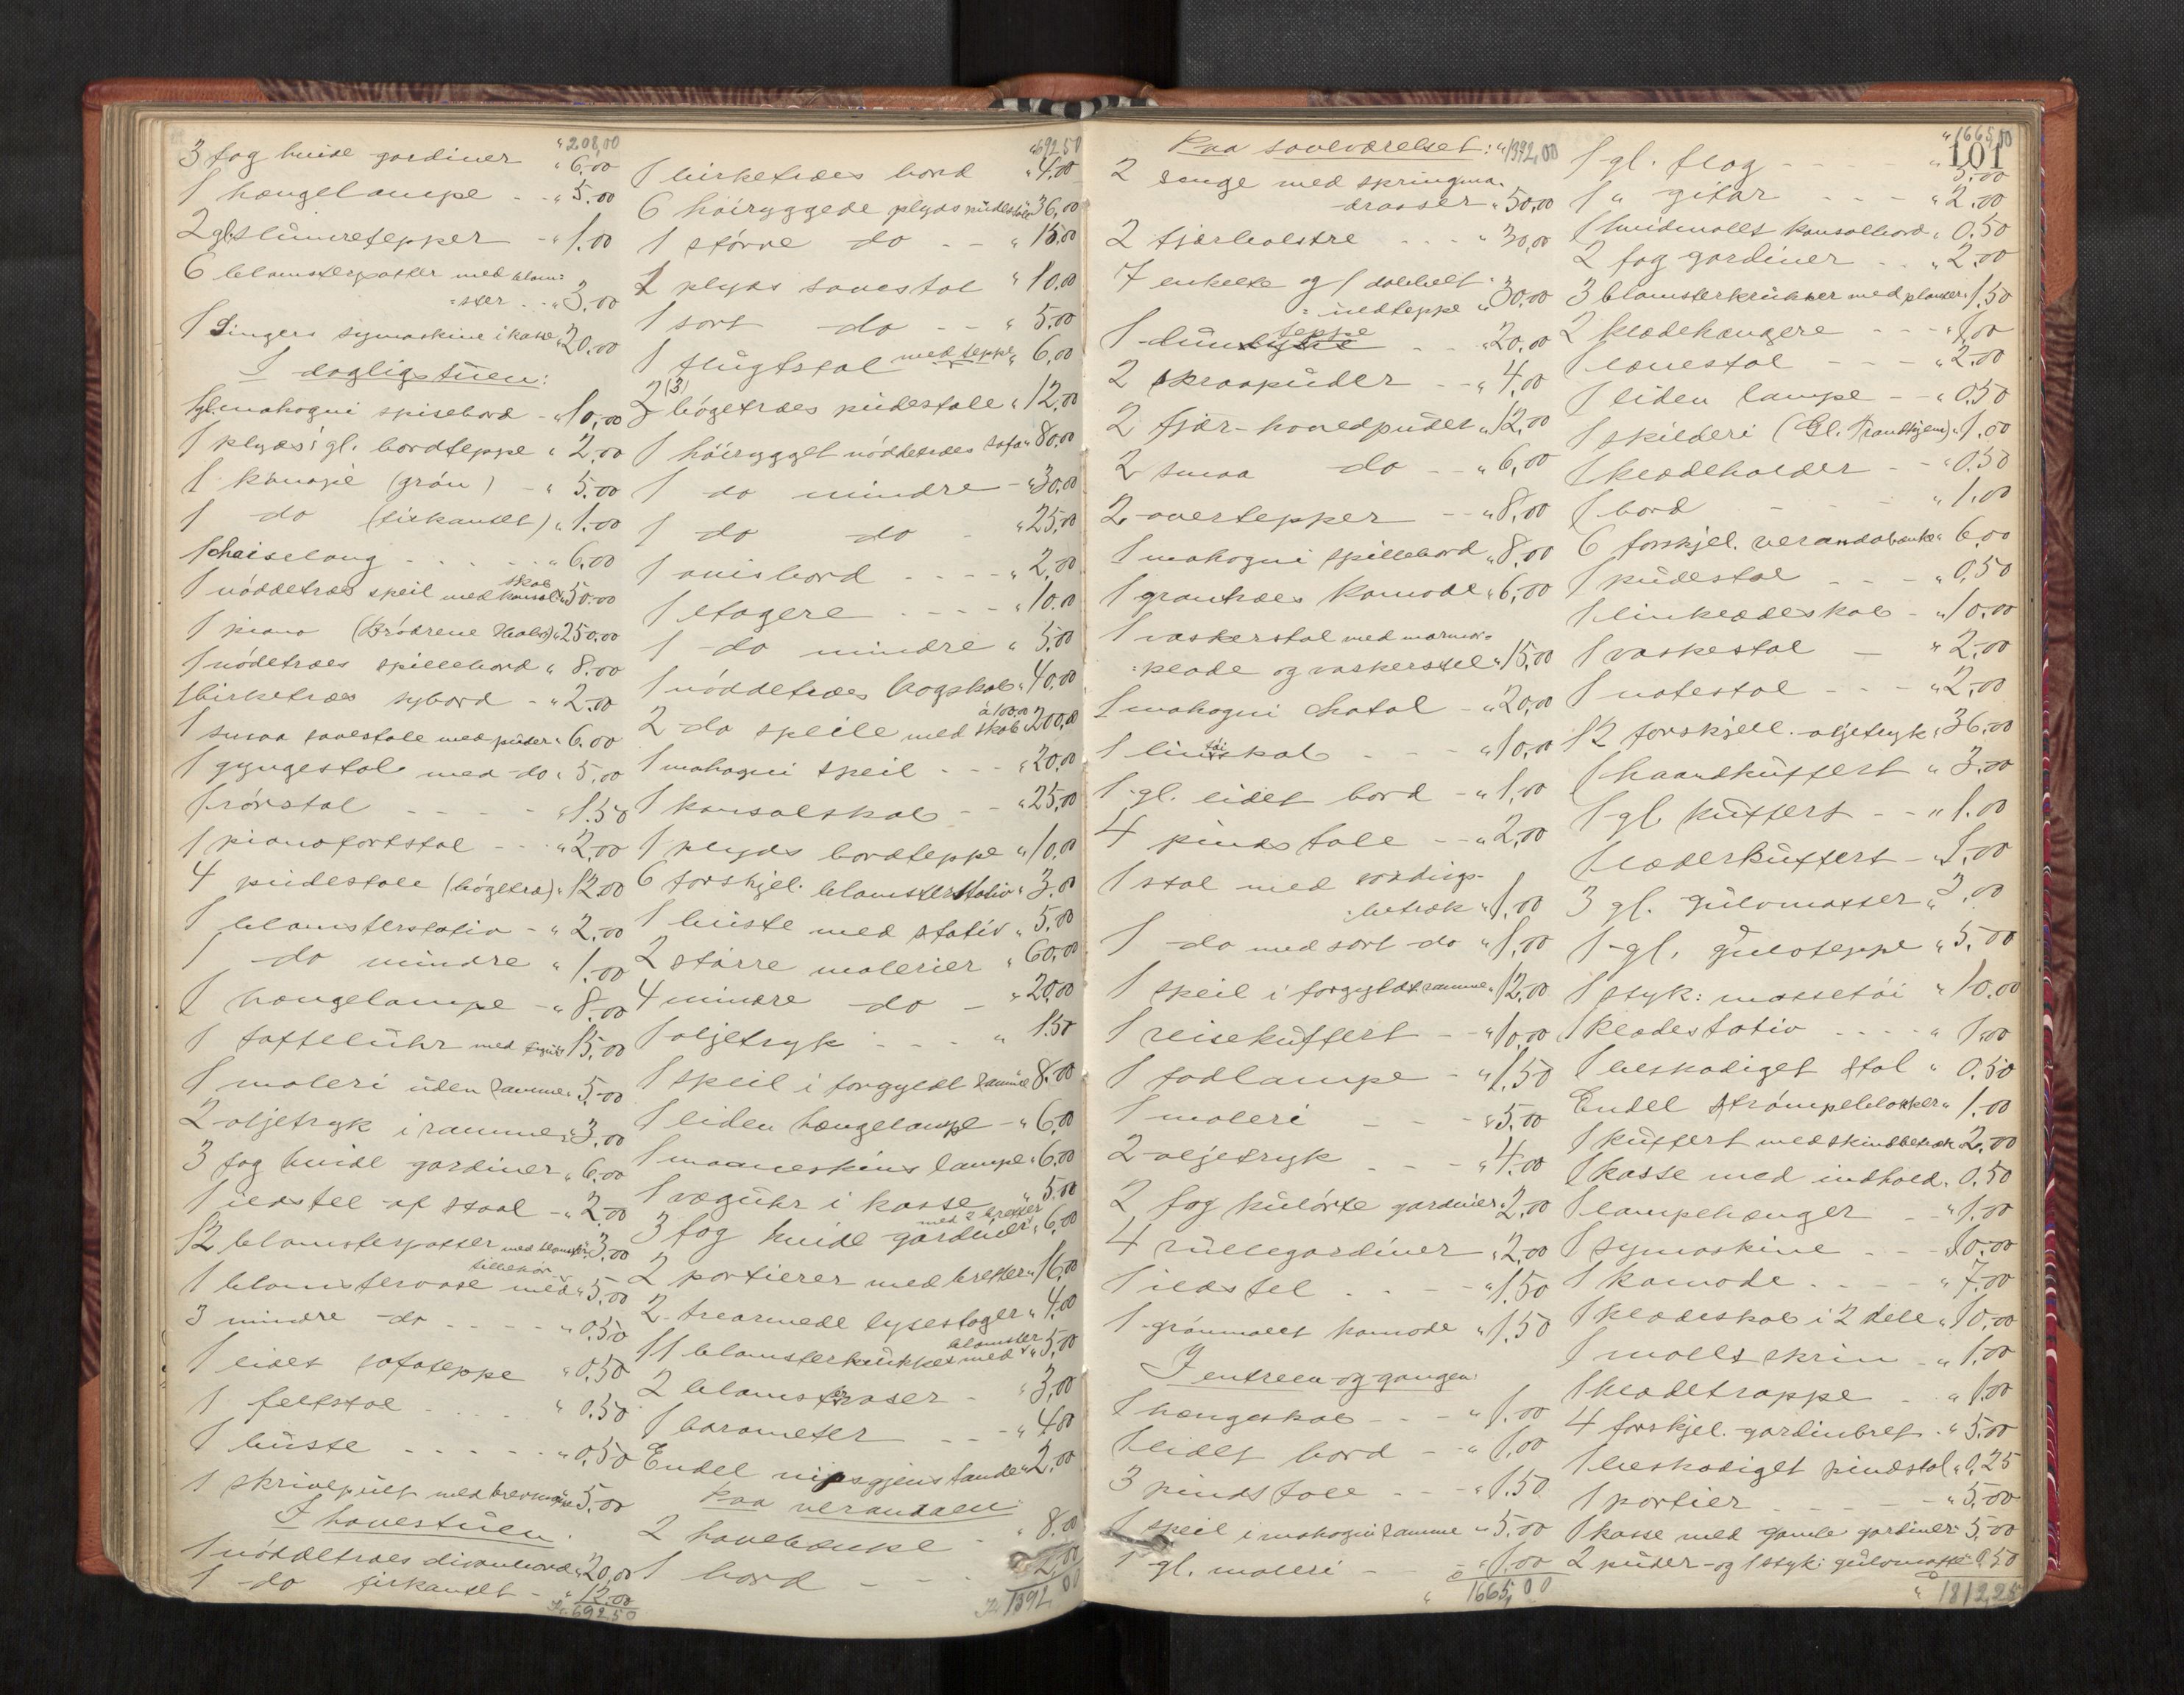 " 208,00
3 fag hvide gardiner " 6.00
1 hængelampe - - " 5.00
2 gl. slumretepper - " 1.00
6 blomsterpotter med blom-
=ster . . " 3.00
1 Singers symaskine i kasse " 20.00
I dagligstuen:
1 gl. mahogni spisebord - " 10,00
1 plyds gl. bordteppe " 2,00
1 kanape (grøn) - " 5.00
1 do (firkantet) " 1.00
1 chaiselong - - - " 6,00
1 nøddetræs speil med konsol skab " 50.00
1 piano (Brødrene Hals) " 250,00
1 nødetræs spillebord " 8.00
1 birketræs sybord - " 2.00
1 smaa lænestole med puder " 6.00
1 gyngestol med do " 5.00
1 rørstol - - - " 1.50
1 pianofortstol - - " 2,00
4 pindestole (bøgetræ) " 12.00
1 blomsterstativ - " 2.00
1 do mindre " 1.00
1 hængelampe - " 8.00
1 taffeluhr med 15,00
1 maleri uden ramme " 5.00
2 oljetryk i ramme " 3.00
3 fag hvide gardiner " 6.00
1 ildstel af staal - " 2.00
12 blomsterpotter med blomster " 3,00
1 blomstervase med tilbehør " 5.00
3 mindre do - - - " 0,50
1 lidet sofateppe " 0.50
1 feltstol - - - " 0.50
1 büste - - - - " 0,50
1 skrivepult med 5.00
I havestuen.
1 nøddetræs divanbord " 20,00
1 do firkantet - " 12.00
Kr. 692,50
" 692,50
1 birketræes bord " 4.00
6 høiryggede plyds pudestole " 36,00
1 større do - - " 15,00
2 plyds lænestol " 10.00
1 sort do - - " 5.00
1 flugtstol med teppe " 6,00
2 (3) bøgetræes pudestole " 12,00
1 høirygget nøddetræes sofa " 80.00
1 do mindre - " 30.00
1 do do - " 25,00
1 avisbord - - - - " 2,00
1 etagere - - - - " 10.00
1 do mindre " 5.00
1 nøddetræes bogskab " 40.00
2 do speile med skab à 100,00 " 200,00
1 mahogni speil - - - " 20,00
1 konsolskab - - " 25,00
1 plyds bordteppe " 10.00
6 forskjel. blomsterstativ " 3.00
1 büste med stativ " 5.00
2 større malerier " 60.00
4 mindre do - " 20.00
1 oljetryk - - - " 1.50
1 speil i forgyldt ramme " 8.00
1 liden hængelampe - " 6,00
1 maaneskins lampe " 6,00
1 væguhr i kasse " 5.00
3 fag hvide gardiner med 2 bretter " 6,00
2 portierer med bretter " 16,00
2 trearmede lysestager " 4.00
11 blomsterkrukker med blomster " 5,00
2 blomstervaser - " 3,00
1 barometer - - - " 4,00
Endel nipsgjenstande " 2.00
Paa verandaen
2 havebænke - " 8.00
1 bord - - - " 2,00
Kr. 1392,00
Paa soveværelset: " 1392,00
2 senge med springma-
drasser " 50,00
2 fjærbolstre - - - " 30,00
7 enkelte og 1 dobbelt
=uldteppe " 30,00
1 dunteppe - - " 20,00
2 skraapuder - - " 4,00
2 fjær-hovedpuder " 12,00
2 smaa do - - " 6,00
2 overtepper - - " 8,00
1 mahogni spillebord " 8,00
1 grantræes komode " 6,00
1 vaskerstol med marmor-
=plade og vaskerstel " 15,00
1 mahogni chatol - " 20,00
1 lintøiskab - - - " 10,00
1 gl. lidet bord - " 1,00
4 pindstole - - " 2,00
1 stol med
betræk " 1.00
1 do med sort do " 1.00
1 speil i forgyldt ramme " 12.00
1 reisekuffert - - " 10,00
1 fodlampe - - " 1,50
1 maleri - - - " 5.00
2 oljetryk - - - " 4.00
2 fag kulørte gardiner " 2,00
4 rullegardiner " 2,00
1 ildstel - - - " 1,50
1 grønmalet komode " 1,50
I entreen og gangen:
1 hængeskab - - - " 1.00
1 lidet bord - - " 1.00
3 pindstole - - - " 1.50
1 speil i mahogni ramme " 5.00
1 gl. maleri - - " 1.00
" 1665,00
" 1665,00
101
1 gl. flag - - - - " 3.00
1 " gitar - - - " 2.00
1 hvidmalet konsolbord " 0,50
2 fag gardiner - - " 2.00
3 blomsterkrukker med planter " 1.50
2 klædehængere - - - " 1,00
1 lænestol - - - " 2.00
1 liden lampe - - " 0.50
1 skilderi (Gl. Trondhjem) " 1.00
1 klædeholder - - " 0.50
1 bord - - - " 1.00
6 forskjel. verandabænke " 6,00
1 pudestol - - - " 0,50
1 linklædeskab - " 10.00
1 vaskestol - " 2,00
1 natestol - - - " 2,00
12 forskjell. oljetryk " 36.00
1 haandkuffert " 3.00
1 gl. kuffert - - " 1.00
1 læderkuffert - " 1.00
3 gl. gulvmatter " 3,00
1 gl. gulvteppe " 5,00
1 styk: mattetøi " 10.00
1 klædestativ - - - - " 1,00
1 beskadiget stol " 0,50
Endel strømpeblokker " 1.00
1 kuffert med skindbetræk " 2,00
1 kasse med indhold " 0,50
1 lampehænger - - " 1.00
1 symaskine - - - " 10.00
1 komode - - - - " 7.00
1 klædeskab i 2 dele " 10,00
1 malet skrin - " 1.00
1 klædetrappe - " 1.00
4 forskjel. gardinbret - " 5.00
1 beskadiget pindstol " 0,25
1 portier - - - - " 5,00
1 kasse med gamle gardiner " 5.00
2 puder- og 1 styk: gulvmatte " 0,50
" 1812,25